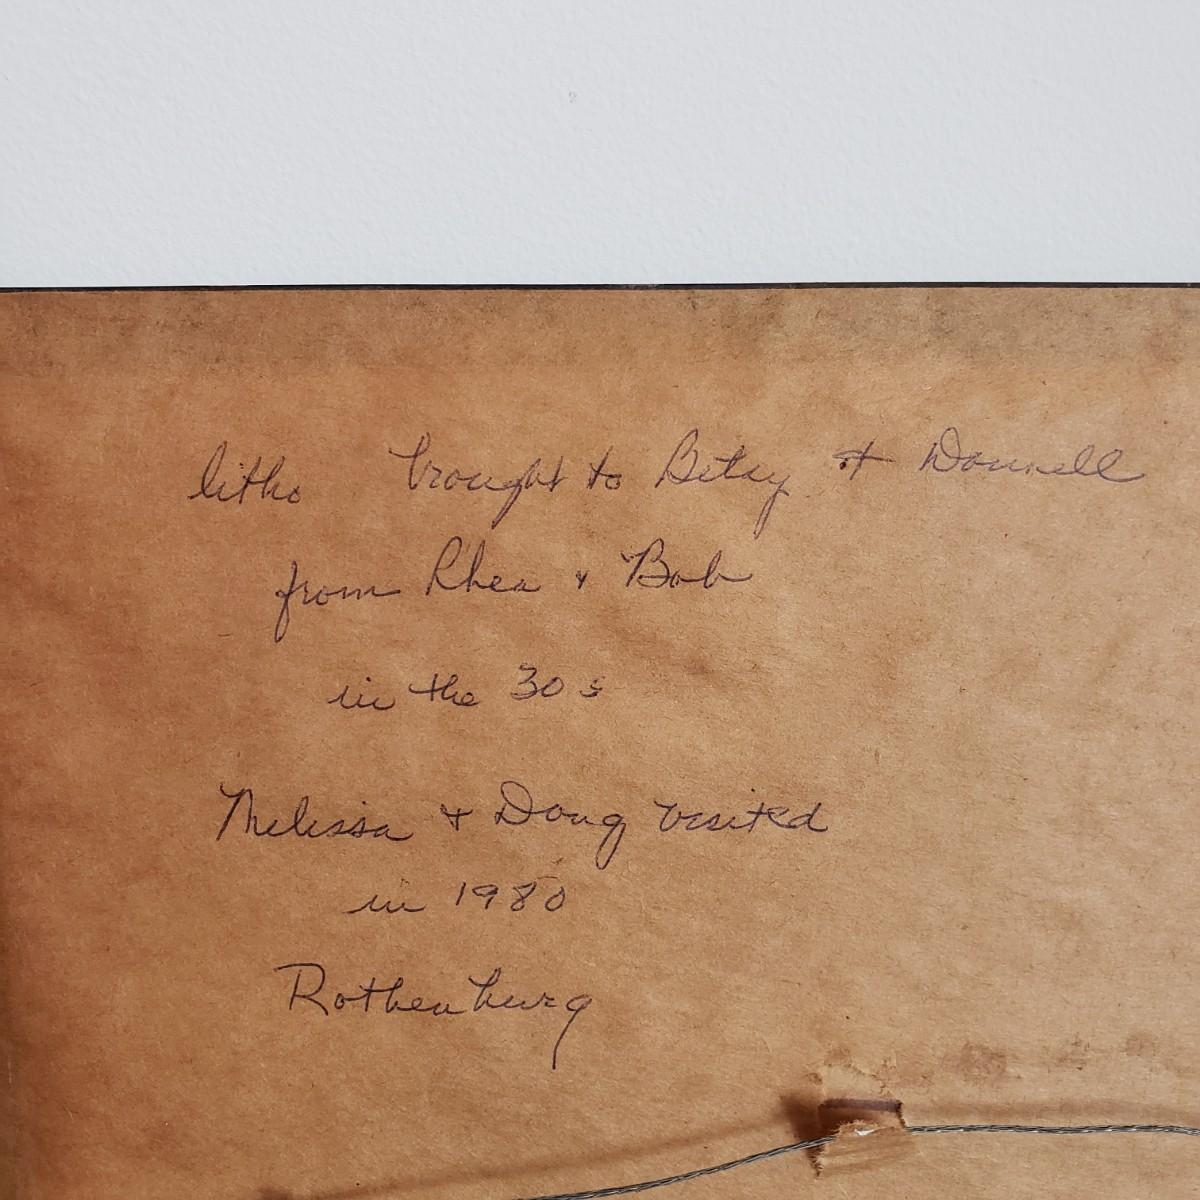 litho brought to Betsy + Donnell
from Rhea + Bob
in the 30s
Melissa + Doug visited
in 1980
Rothenburg